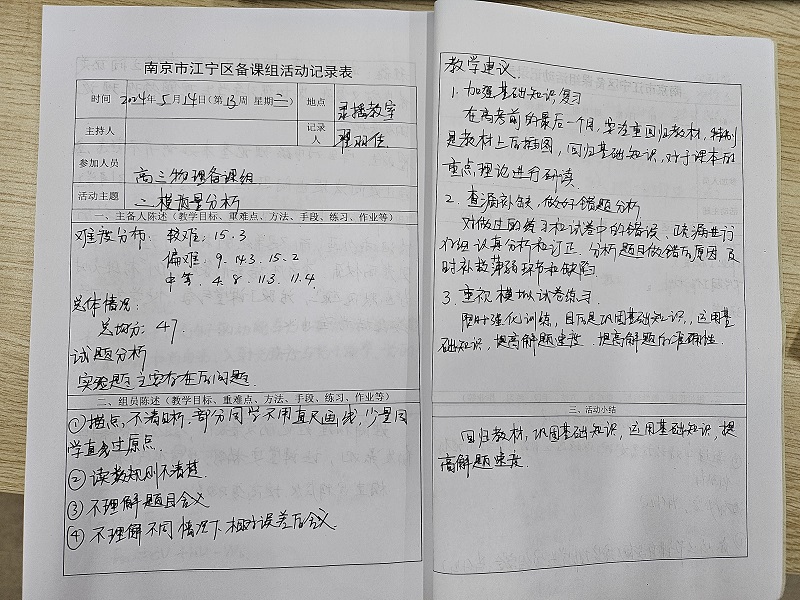 南京市江宁区备课组活动记录表
时间 2024年5月14日(第13周 星期二) 地点 录播教室
主持人 记录人
参加人员 高三物理备课组
活动主题 二模质量分析
一、主备人陈述（教学目标、重难点、方法、手段、练习、作业等）
难度分布: 较难: 15.3
偏难: 9. 14.3. 15.2
中等. 4. 8. 11.3. 11.4.
总体情况:
总均分: 47.
试题分析
实验题主要存在的问题.
二、组员陈述（教学目标、重难点、方法、手段、练习、作业等）
①描点不清晰, 部分同学不用直尺画线, 少量同
学直线过原点.
②读数规则不清楚.
③不理解题目含义
④不理解不同情况下相对误差的含义.
教学建议.
1. 加强基础知识复习
在高考前的最后一个月, 要注重回归教材, 特别
是教材上的插图, 回归基础知识, 对于课本的
重点理论进行研读.
2. 查漏补缺, 做好错题分析
对做过的练习和试卷中的错误、缺漏进行
认真分析和订正. 分析题目做错的原因, 及
时补救薄弱环节和缺陷.
3. 重视模拟试卷练习.
限时强化训练, 目的是巩固基础知识, 运用基
础知识, 提高解题速度. 提高解题的准确性.
三、活动小结
回归教材, 巩固基础知识, 运用基础知识, 提
高解题速度.